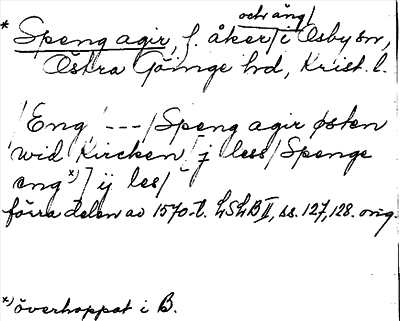 och äng/
* Speng agir, f. åker/i Osby sn,
Östra Göinge hd, Krist. l.
/Eng ---/Speng agir østen
wid Kircken/ j less/Spenge
eng *)/ ij les/
förra delen av 1570-t. LSLB II, ss. 127, 128. orig.
*) överhoppat i B.